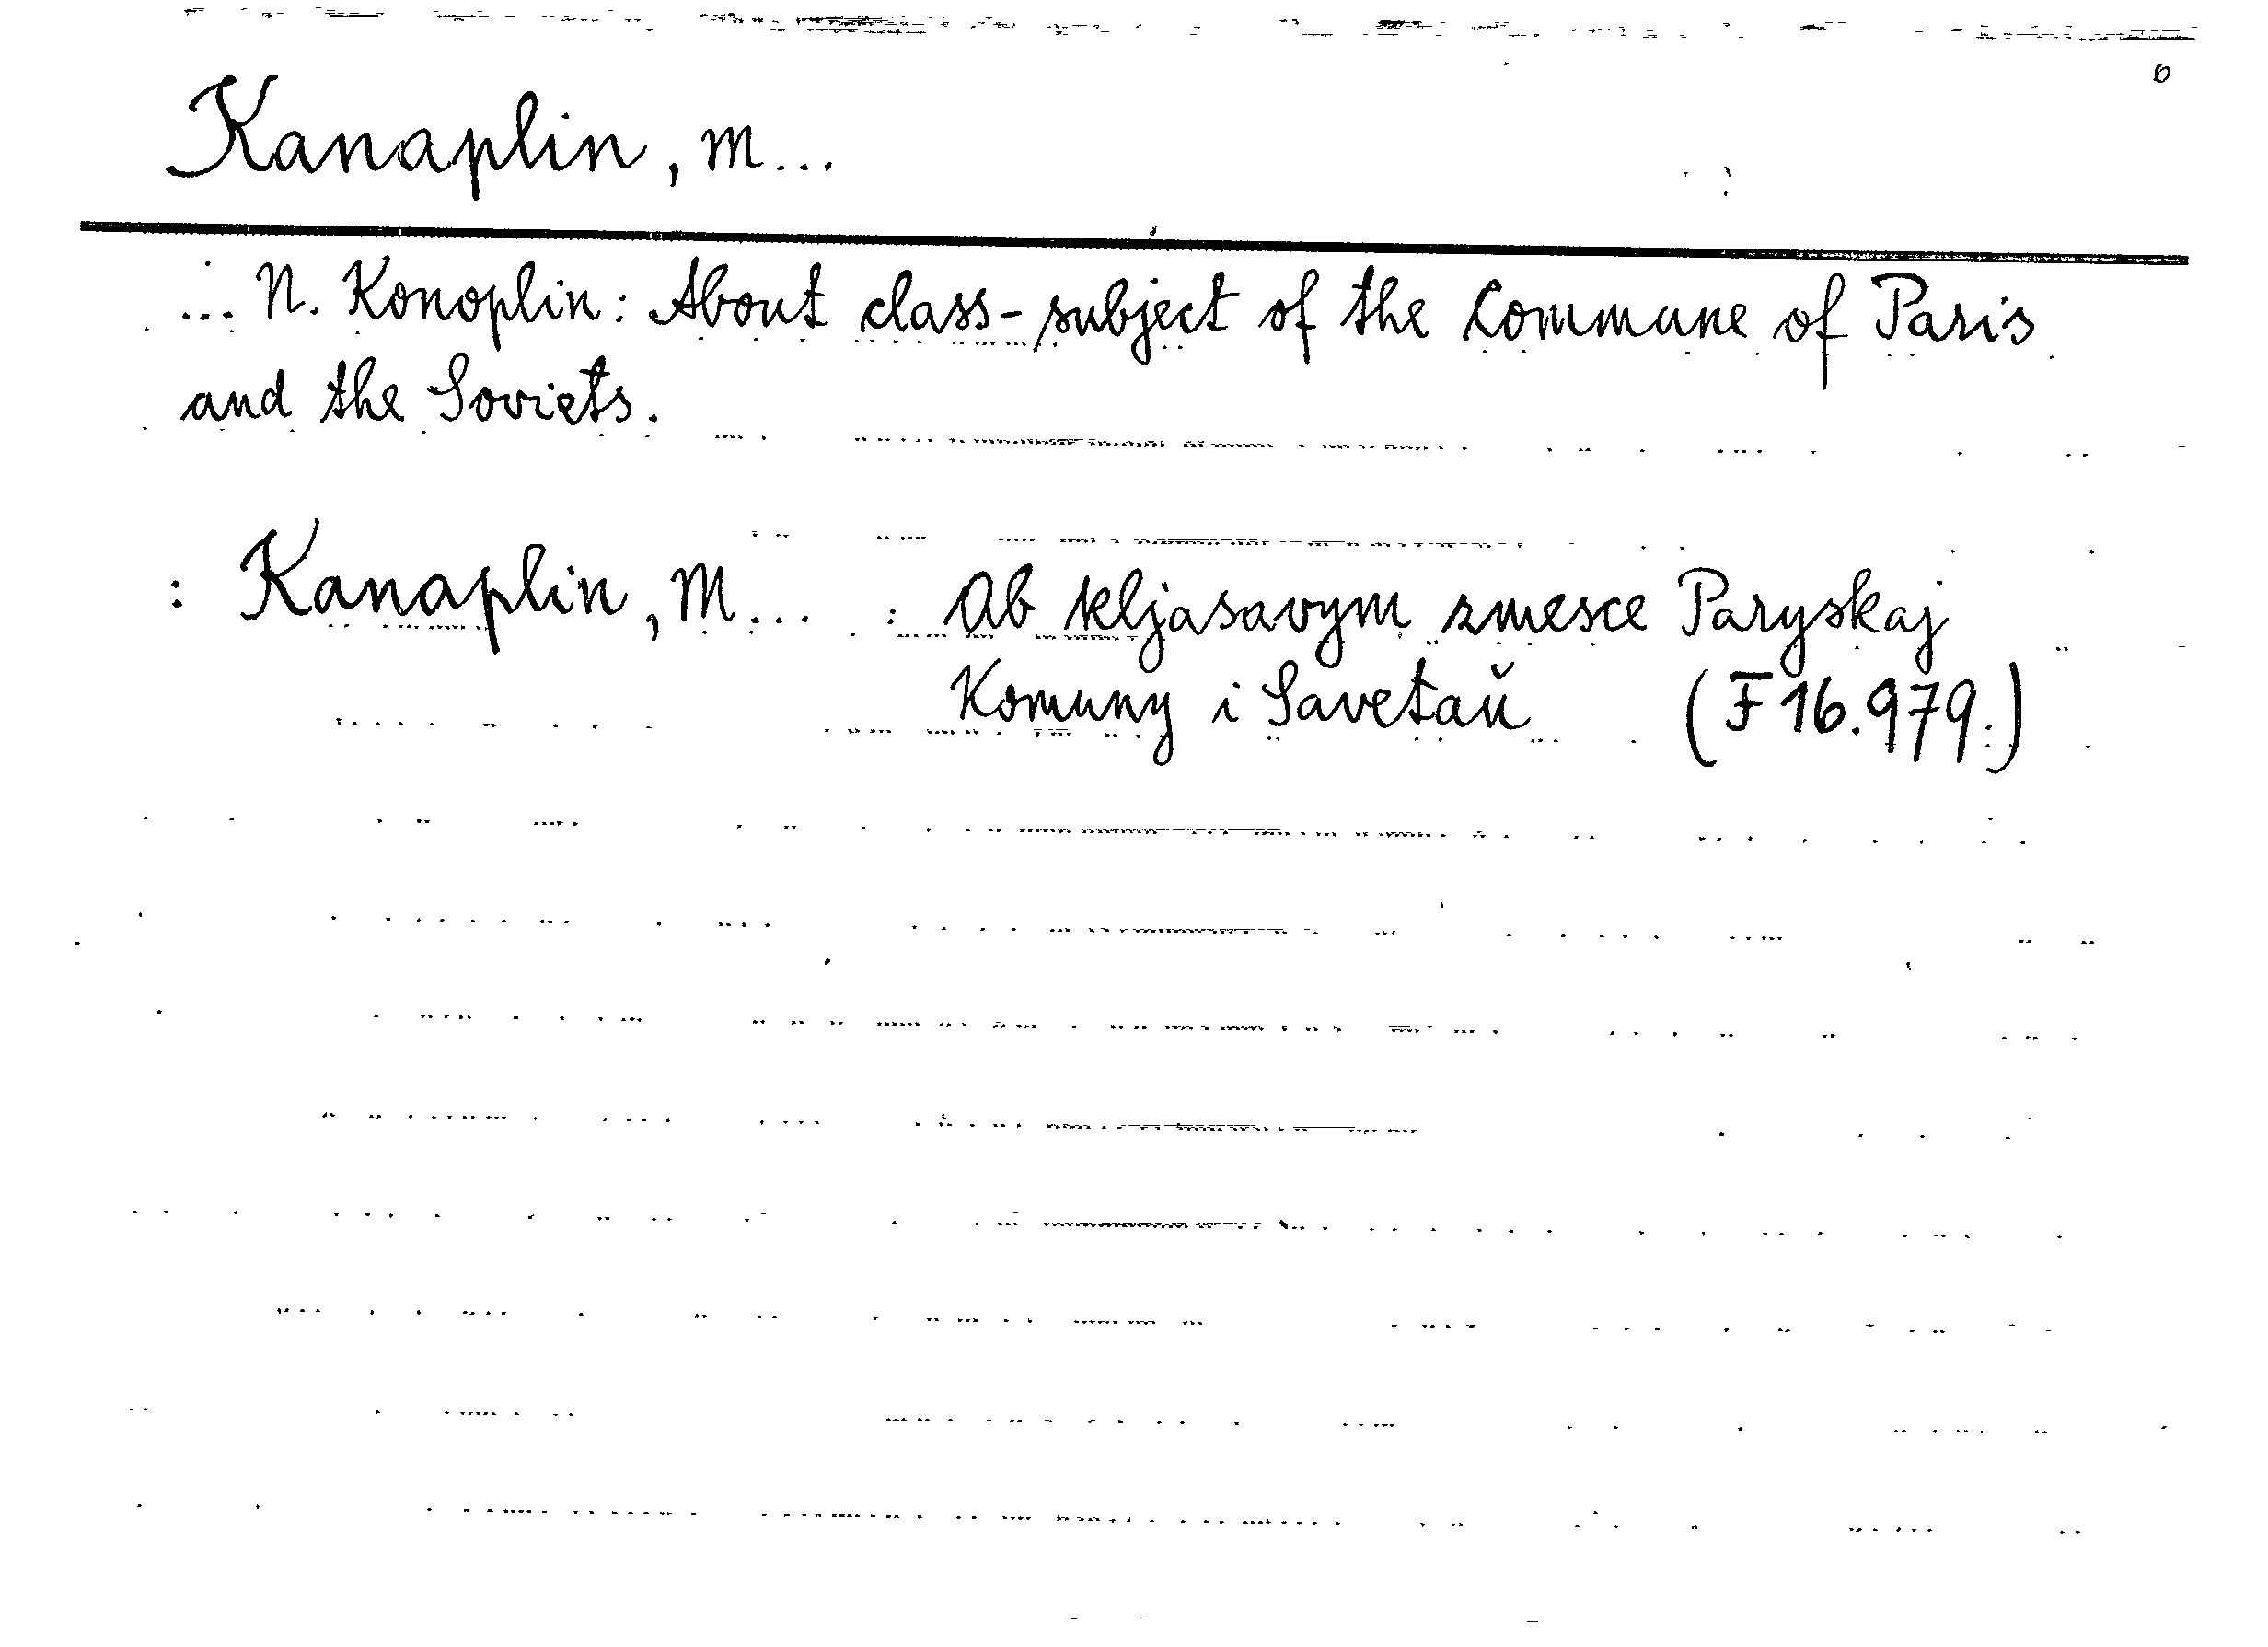 Kanaplin, M...
... N. Konoplin: About class-subject of the Commune of Paris
and the Soviets.
: Kanaplin, M... : Ab kljasavym zmesce Paryskaj
Komuny i Savetaŭ (F 16.979.)